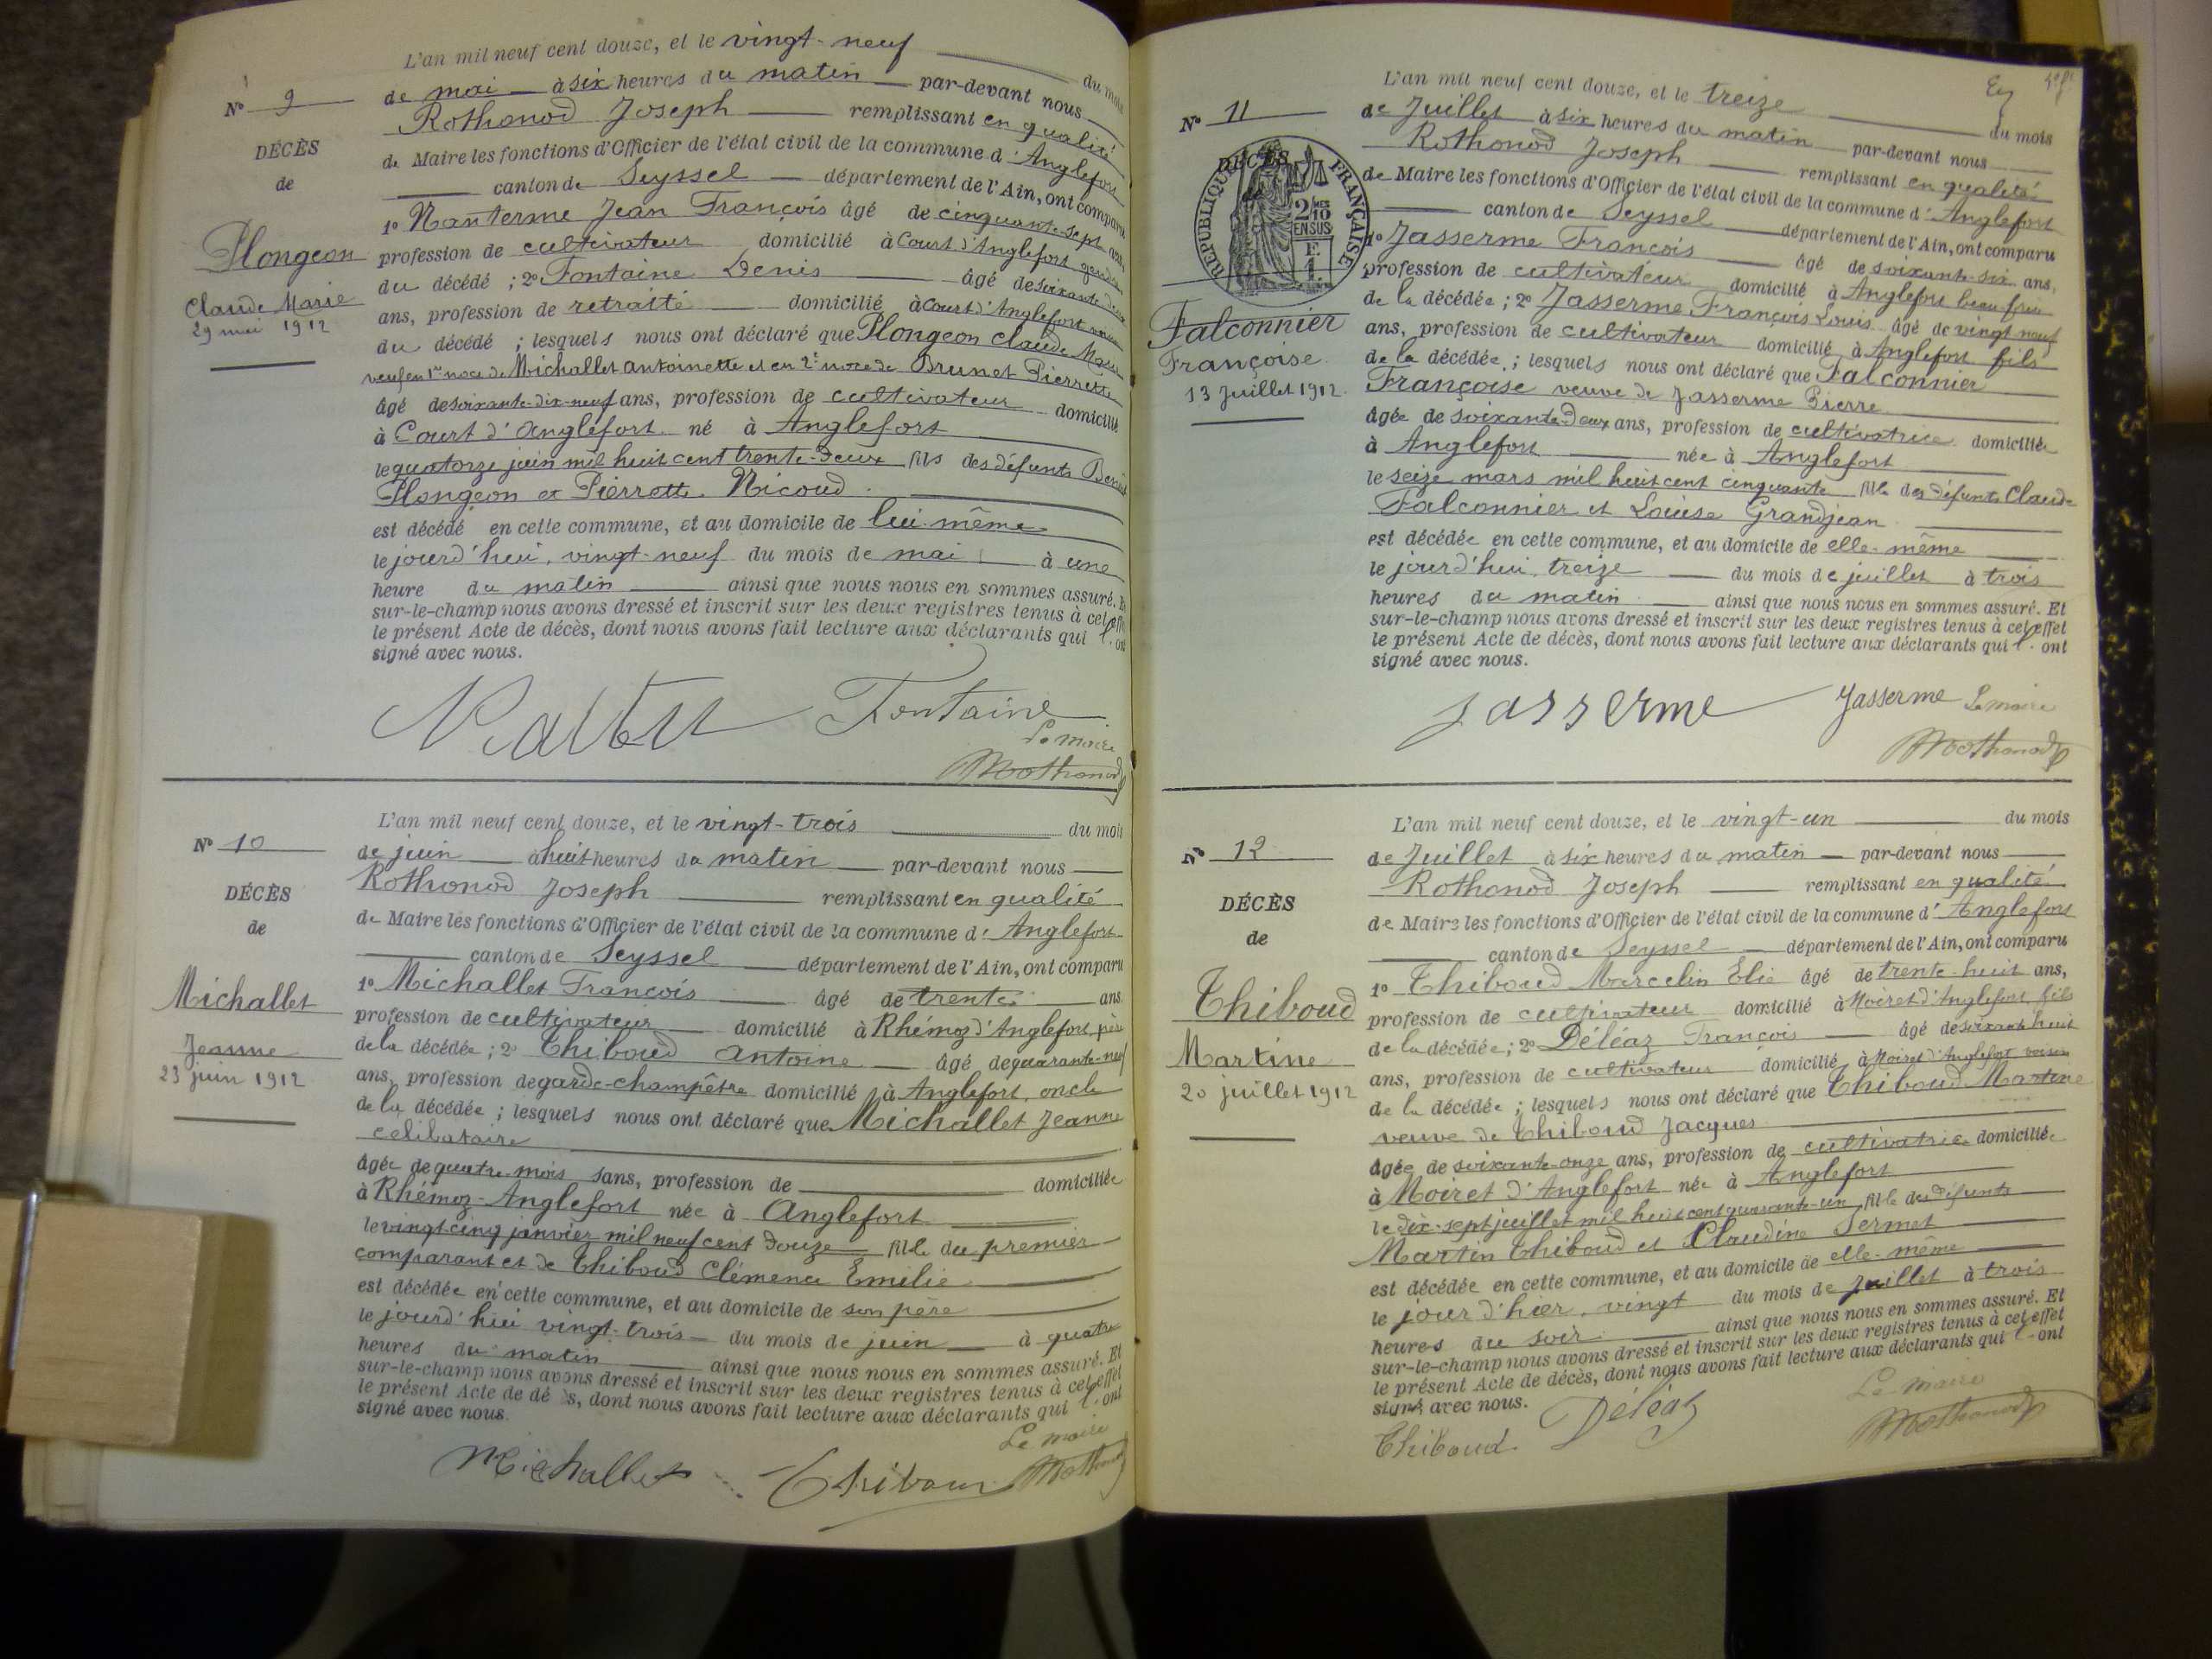 L'an mil neuf cent douze, et le vingt-neuf du mois
Nº 9
de mai à six heures du matin par-devant nous
Rothonod Joseph remplissant en qualité
DÉCÈS
de Maire les fonctions d'Officier de l'état civil de la commune d'Anglefort
de
canton de Seyssel département de l'Ain, ont comparu
1º Nanterme Jean François âgé de cinquante-sept ans,
Plongeon
profession de cultivateur domicilié à Court d'Anglefort gendre
Claude Marie
du décédé ; 2º Fontaine Denis âgé de soixante-deux
29 mai 1912
ans, profession de retraité domicilié à Court d'Anglefort
du décédé ; lesquels nous ont déclaré que Plongeon Claude Marie
veuf en 1re noce de Michallet Antoinette et en 2e noce de Brunet Pierrette
âgé de soixante-dix-neuf ans, profession de cultivateur domicilié
à Court d'Anglefort né à Anglefort
le quatorze juin mil huit cent trente-deux fils des défunts
Plongeon et Pierrette Nicoud
est décédé en cette commune, et au domicile de lui-même
le jourd'hui, vingt-neuf du mois de mai à une
heure du matin ainsi que nous nous en sommes assuré. Et
sur-le-champ nous avons dressé et inscrit sur les deux registres tenus à cet effet
le présent Acte de décès, dont nous avons fait lecture aux déclarants qui l'ont
signé avec nous.
Fontaine
Le maire
Rothonod
L'an mil neuf cent douze, et le vingt-trois du mois
Nº 10
de juin à huit heures du matin par-devant nous
Rothonod Joseph remplissant en qualité
DÉCÈS
de Maire les fonctions d'Officier de l'état civil de la commune d'Anglefort
de
canton de Seyssel département de l'Ain, ont comparu
1º Michallet François âgé de trente ans
Michallet
profession de cultivateur domicilié à Rhémoz d'Anglefort, père
Jeanne
de la décédée ; 2º Thiboud Antoine âgé de quarante-neuf
23 juin 1912
ans, profession de garde-champêtre domicilié à Anglefort, oncle
de la décédée ; lesquels nous ont déclaré que Michallet Jeanne
célibataire
âgée de quatre mois sans, profession de domiciliée
à Rhémoz-Anglefort née à Anglefort
le vingt cinq janvier mil neuf cent douze fille du premier
comparant et de Thiboud Clémence Emilie
est décédée en cette commune, et au domicile de son père
le jourd'hui vingt-trois du mois de juin à quatre
heures du matin ainsi que nous nous en sommes assuré. Et
sur-le-champ nous avons dressé et inscrit sur les deux registres tenus à cet effet
le présent Acte de décès, dont nous avons fait lecture aux déclarants qui l'ont
signé avec nous.
Le maire
Michallet Thiboud Rothonod
L'an mil neuf cent douze, et le treize du mois
Nº 11
de Juillet à six heures du matin par-devant nous
Rothonod Joseph remplissant en qualité
DÉCÈS
RÉPUBLIQUE FRANÇAISE
2/10 EN SUS
de Maire les fonctions d'Officier de l'état civil de la commune d'Anglefort
canton de Seyssel département de l'Ain, ont comparu
1º Jasserme François âgé de soixante-six ans,
profession de cultivateur domicilié à Anglefort beau frère
de la décédée ; 2º Jasserme François Louis âgé de vingt neuf
Falconnier
ans, profession de cultivateur domicilié à Anglefort fils
Françoise
de la décédée ; lesquels nous ont déclaré que Falconnier
13 Juillet 1912.
Françoise veuve de Jasserme Pierre
âgée de soixante-deux ans, profession de cultivatrice domiciliée
à Anglefort née à Anglefort
le seize mars mil huit cent cinquante fille des défunts Claude
Falconnier et Louise Grandjean
est décédée en cette commune, et au domicile de elle-même
le jourd'hui treize du mois de juillet à trois
heures du matin ainsi que nous nous en sommes assuré. Et
sur-le-champ nous avons dressé et inscrit sur les deux registres tenus à cet effet
le présent Acte de décès, dont nous avons fait lecture aux déclarants qui l'ont
signé avec nous.
Jasserme Jasserme Le maire
Rothonod
L'an mil neuf cent douze, et le vingt-un du mois
Nº 12
de Juillet à six heures du matin par-devant nous
Rothonod Joseph remplissant en qualité
DÉCÈS
de Maire les fonctions d'Officier de l'état civil de la commune d'Anglefort
de
canton de Seyssel département de l'Ain, ont comparu
1º Thiboud Marcelin Elie âgé de trente-huit ans,
Thiboud
profession de cultivateur domicilié à Moiret d'Anglefort fils
de la décédée ; 2º Déléaz François âgé de soixante huit
Martine
ans, profession de cultivateur domicilié à Moiret d'Anglefort voisin
20 juillet 1912
de la décédée ; lesquels nous ont déclaré que Thiboud Martine
veuve de Thiboud Jacques
âgée de soixante-onze ans, profession de cultivatrice domiciliée
à Moiret d'Anglefort née à Anglefort
le dix-sept juillet mil huit cent quarante-un fille des défunts
Martin Thiboud et Claudine Sermet
est décédée en cette commune, et au domicile de elle-même
le jour d'hier, vingt du mois de juillet à trois
heures du soir ainsi que nous nous en sommes assuré. Et
sur-le-champ nous avons dressé et inscrit sur les deux registres tenus à cet effet
le présent Acte de décès, dont nous avons fait lecture aux déclarants qui l'ont
signé avec nous.
Le maire
Thiboud Déléaz Rothonod